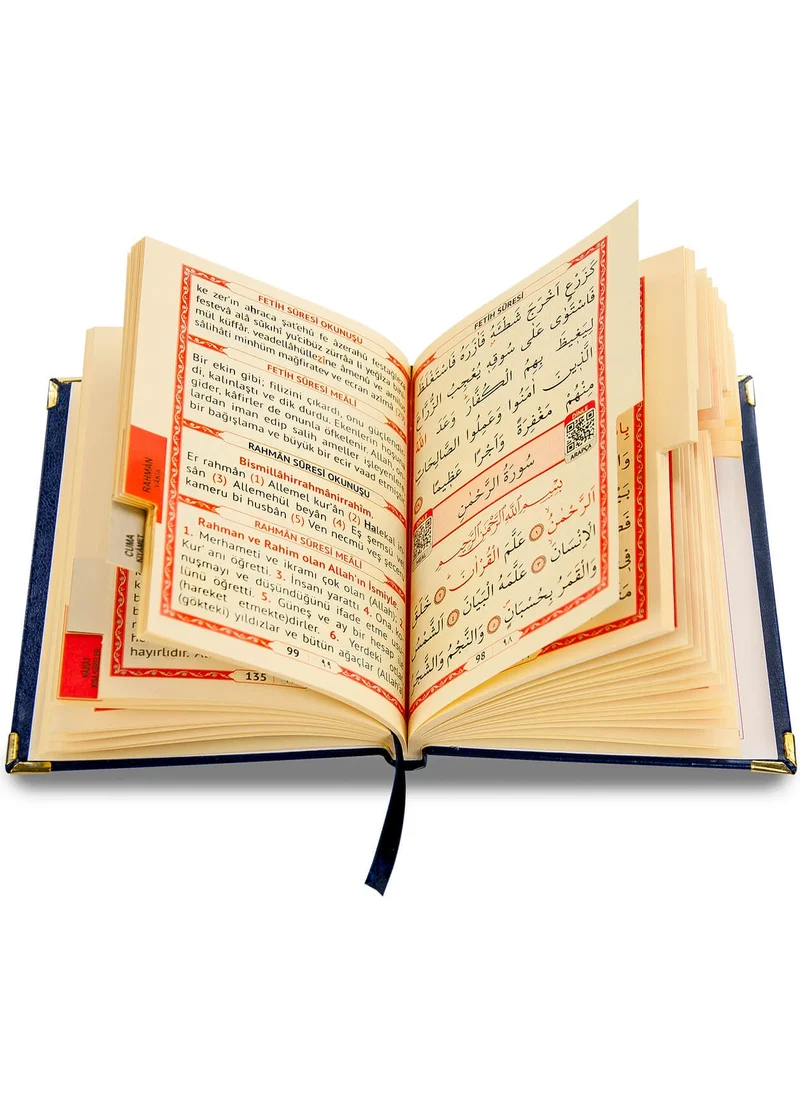 FETİH SÛRESİ OKUNUŞU
ke zer'in aḥraca şat'ehû fe âzerahû festağleza
festevâ alâ sûkıhî yu'cibüz zürrâa li yeğîza bihi
mül küffâr. veadellâhüllezîne âmenû ve amilüs
sâlihâti minhüm mağfiratev ve ecran azîmâ
FETİH SÛRESİ MEÂLİ
Bir ekin gibi; filizini çıkardı, onu güçlen
di, kalınlaştı ve dik durdu. Ekenlerin hoşu
gider, kâfirler de onunla öfkelenir. Allah, on
lardan iman edip salih ameller işleyenlere
bir bağışlama ve büyük bir ecir vaad etmiş
RAHMÂN SÛRESİ OKUNUŞU
Bismillâhirrahmânirrahîm.
Er rahmân (1) Allemel kur'ân (2) Halekal in
sân (3) Allemehül beyân (4) Eş şemsü vel
kameru bi husbân (5) Ven necmü veş şecer
RAHMÂN SÛRESİ MEÂLİ
Rahman ve Rahim olan Allah'ın İsmiyle
1. Merhameti ve ikramı çok olan (Allah)
Kur' anı öğretti. 3. İnsanı yarattı 4. Ona ko
nuşmayı ve düşündüğünü ifade etme
lünü öğretti. 5. Güneş ve ay bir hesap
(hareket etmekte)dirler. 6. Yerdeki otlar
(gökteki) yıldızlar ve bütün ağaçlar (Allah'
99 ٩٩
RAHMÂN
CUMA
KIYAMET
hayırlıdır.
135
FETİH SÛRESİ
كَزَرْعٍ اَخْرَجَ شَطْئَهُ فَاٰزَرَهُ فَاسْتَغْلَظَ
فَاسْتَوٰى عَلٰى سُوقِهِ يُعْجِبُ الزُّرَّاعَ
لِيَغِيظَ بِهِمُ الْكُفَّارَ وَعَدَ اللّٰهُ
الَّذِينَ اٰمَنُوا وَعَمِلُوا الصَّالِحَاتِ
مِنْهُمْ مَغْفِرَةً وَاَجْرًا عَظِيمًا
DİNLE
ARAPÇA
سُورَةُ الرَّحْمٰنِ
بِسْمِ اللّٰهِ الرَّحْمٰنِ الرَّحِيمِ
اَلرَّحْمٰنُ ١ عَلَّمَ الْقُرْاٰنَ ٢ خَلَقَ
الْاِنْسَانَ ٣ عَلَّمَهُ الْبَيَانَ ٤ اَلشَّمْسُ
وَالْقَمَرُ بِحُسْبَانٍ ٥ وَالنَّجْمُ وَالشَّجَرُ
98 ٩٨